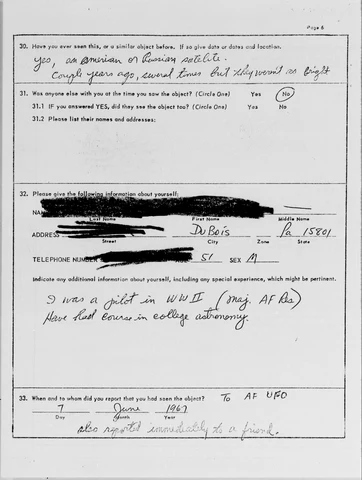 Page 6
30. Have you ever seen this, or a similar object before. If so give date or dates and location.
yes, an american or Russian satelite.
Couple years ago, several times but they weren't as bright
31. Was anyone else with you at the time you saw the object? (Circle One) Yes No
31.1 If you answered YES, did they see the object too? (Circle One) Yes No
31.2 Please list their names and addresses:
32. Please give the following information about yourself:
NAME
Last Name First Name Middle Name
ADDRESS DuBois Pa 15801
Street City Zone State
TELEPHONE NUMBER 51 SEX M
Indicate any additional information about yourself, including any special experience, which might be pertinent.
I was a pilot in WW II (maj. AF Res)
Have had course in college astronomy.
33. When and to whom did you report that you had seen the object? To AF UFO
7 June 1967
Day Month Year
also reported immediately to a friend.